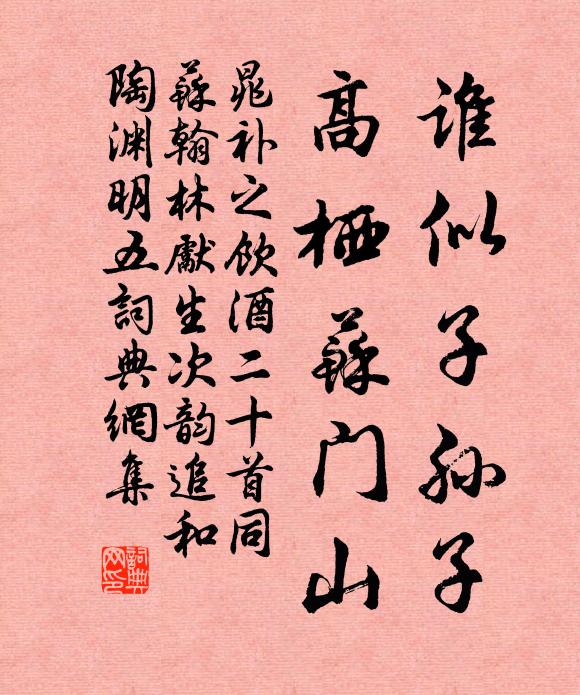 谁似子孙子
高栖蘇门山
晁补之飲酒二十首同
蘇翰林獻生次韵追和
陶渊明五詞典網集
詞典网印